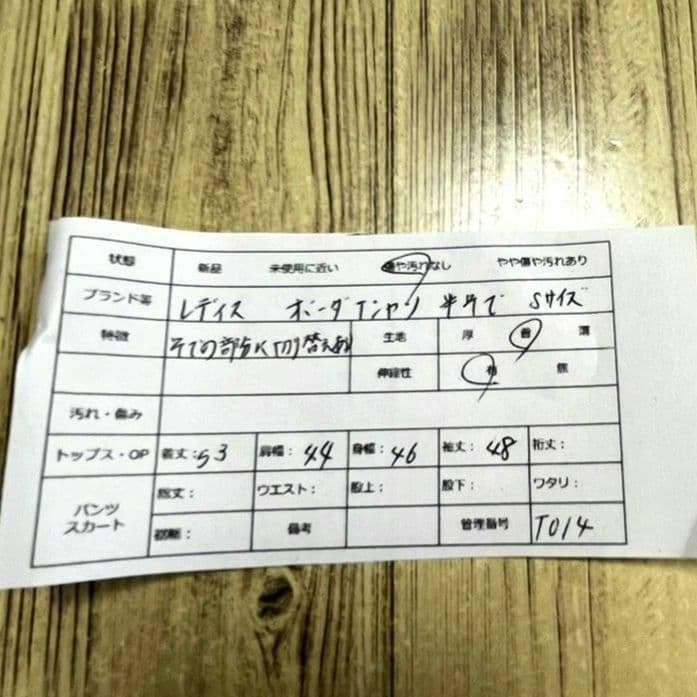 状態 新品 未使用に近い 傷や汚れなし やや傷や汚れあり
ブランド等 レディス ボーダTシャツ 半そで Sサイズ
特徴 そでの部分に切り替えあり 生地 厚 普 薄
伸縮性 有 無
汚れ・傷み
トップス・OP 着丈:53 肩幅: 44 身幅: 46 袖丈: 48 裄丈:
パンツ 総丈: ウエスト: 股上: 股下: ワタリ:
スカート 裾幅: 備考 管理番号 T014